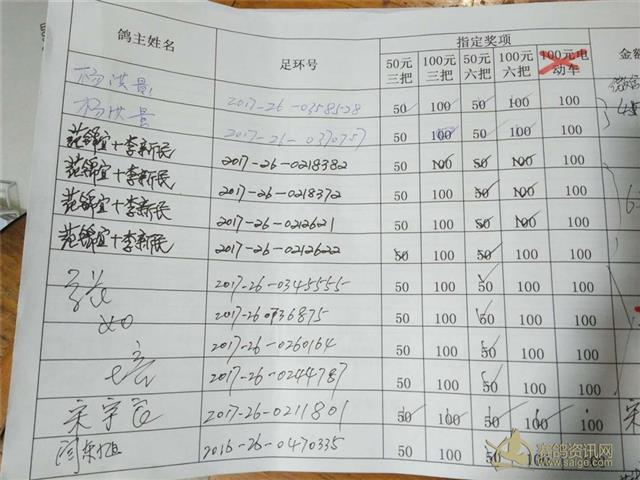 鸽主姓名 足环号 指定奖项 金额
50元三把 100元三把 50元六把 100元六把 100元电动车
杨洪景 2017-26-0358528 50 100 50 100 100
杨洪景 2017-26-0370757 50 100 50 100 100
范锦宜+李新民 2017-26-0218382 50 100 50 100 100
范锦宜+李新民 2017-26-0218372 50 100 50 100 100
范锦宜+李新民 2017-26-0212621 50 100 50 100 100
范锦宜+李新民 2017-26-0212622 50 100 50 100 100
2017-26-0345555 50 100 50 100 100
2017-26-0736875 50 100 50 100 100
2017-26-0260164 50 100 50 100 100
2017-26-0244787 50 100 50 100 100
2017-26-0211801 50 100 50 100 100
2016-26-0470335 50 100 50 100 100
有鸽资讯网
www.saige.com